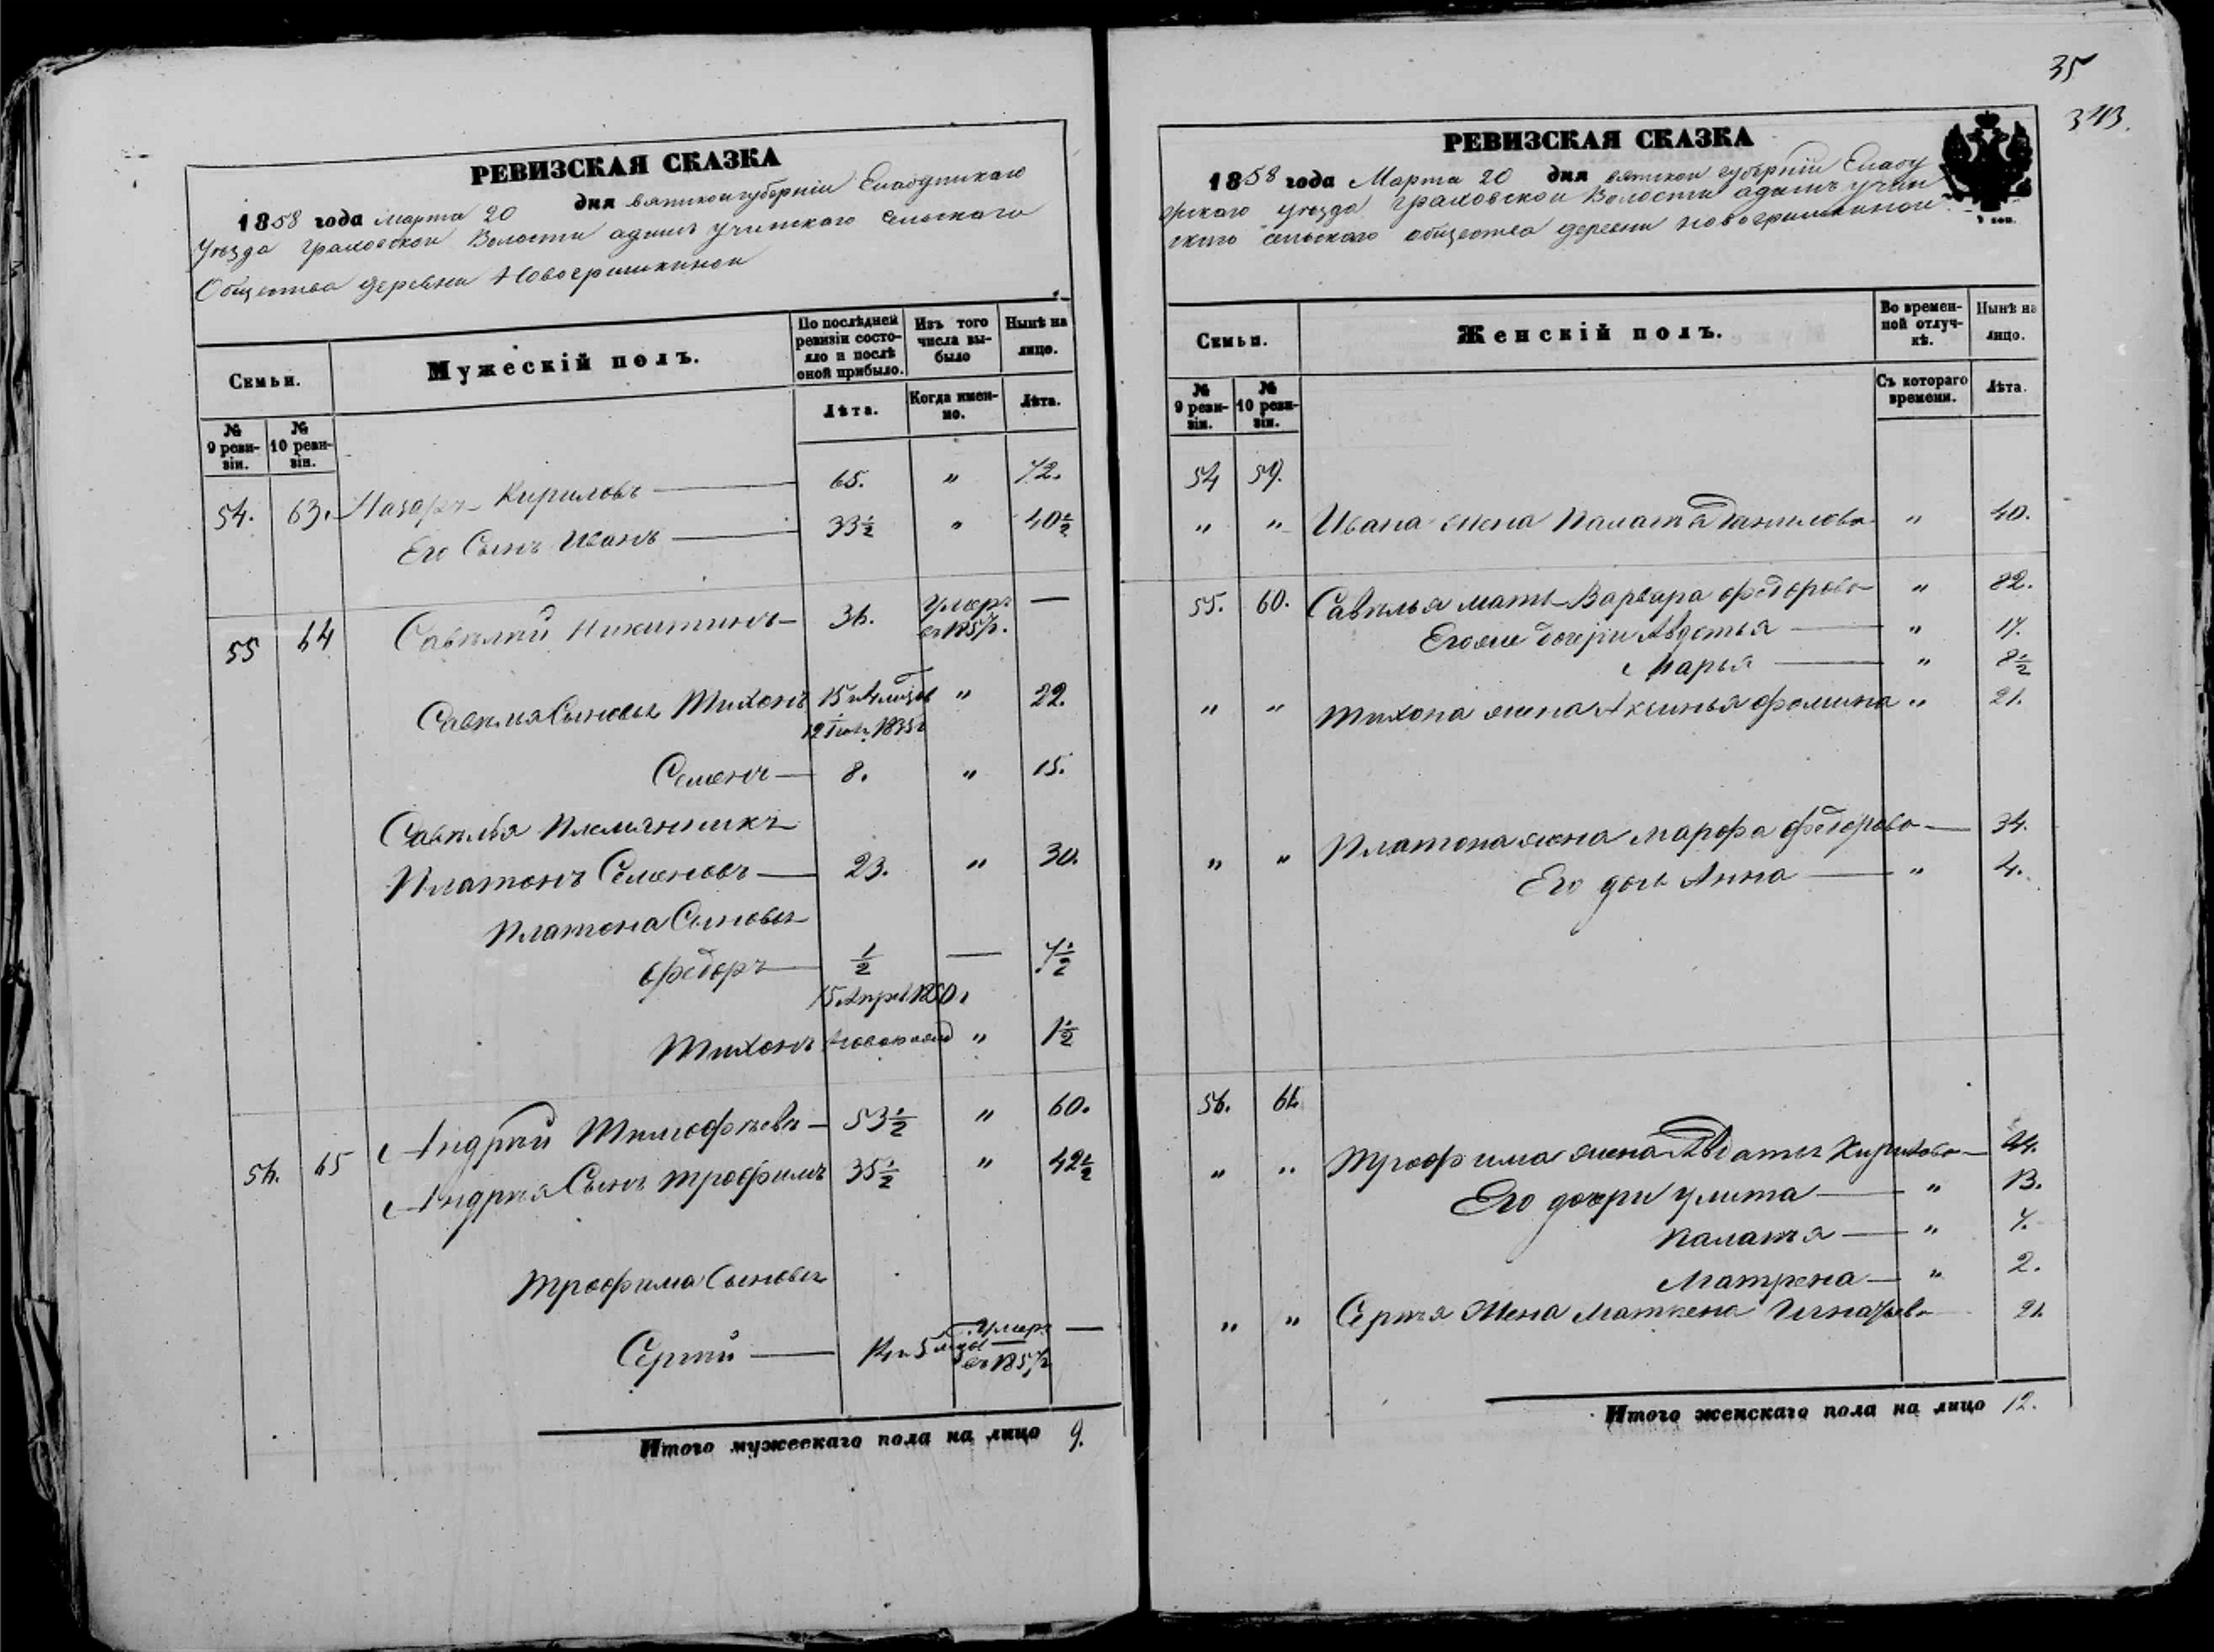 РЕВИЗСКАЯ СКАЗКА
1858 года Марта 20 дня вятской губерніи Елабужскаго
Уѣзда граховской Волости адамъ учинскаго сельскаго
Общества деревни Новогришкиной
Семьи.
Мужескій полъ.
По послѣдней ревизіи состояло и послѣ оной прибыло.
Изъ того числа выбыло
Нынѣ на лицо.
№ 9 ревизіи.
№ 10 ревизіи.
Лѣта.
Когда именно.
Лѣта.
54. 63. Назаръ Кириловъ 65. " 72.
Его Сынъ Иванъ 33½ " 40½
55 64 Савѣлій Никитинъ 36. Умеръ въ 1857г. —
Савѣлья Сыновья Тихонъ 15 " 22.
12 1835
Семенъ 8. " 15.
Савѣлья Племянникъ
Платонъ Семеновъ 23. " 30.
Платона Сыновья
Федоръ ½ — 7½
15 Апрел 1850г
Тихонъ новорожд " 1½
56. 65 Андрей Тимофѣевъ 53½ " 60.
Андрея Сынъ трофимъ 35½ " 42½
трофима Сыновья
Сергѣй 5 Умеръ въ 1857г —
Итого мужескаго пола на лицо 9.
35
343.
РЕВИЗСКАЯ СКАЗКА
1858 года Марта 20 дня вятской губерніи Елабу
жскаго уѣзда граховской Волости адамъ учин
скаго сельскаго общества деревни новогришкиной
Семьи.
Женскій полъ.
Во временной отлучкѣ.
Нынѣ на лицо.
№ 9 ревизіи.
№ 10 ревизіи.
Съ котораго времени.
Лѣта.
54 59.
" " Ивана жена Палагѣя Данилова " 40.
55. 60. Савѣлья мать Варвара федорова " 82.
Егоже дочери Авдотья " 17.
Марья " 8½
" " тихона жена Аксинья фомина " 21.
" " Платона жена марфа федорова 34.
Его дочь Анна " 4.
56. 61.
" " трофима жена Кирилова 44.
Его дочери улита " 13.
Палагѣя " 7.
Матрена " 2.
" " Сергѣя Жена Игнатьева 21.
Итого женскаго пола на лицо 12.